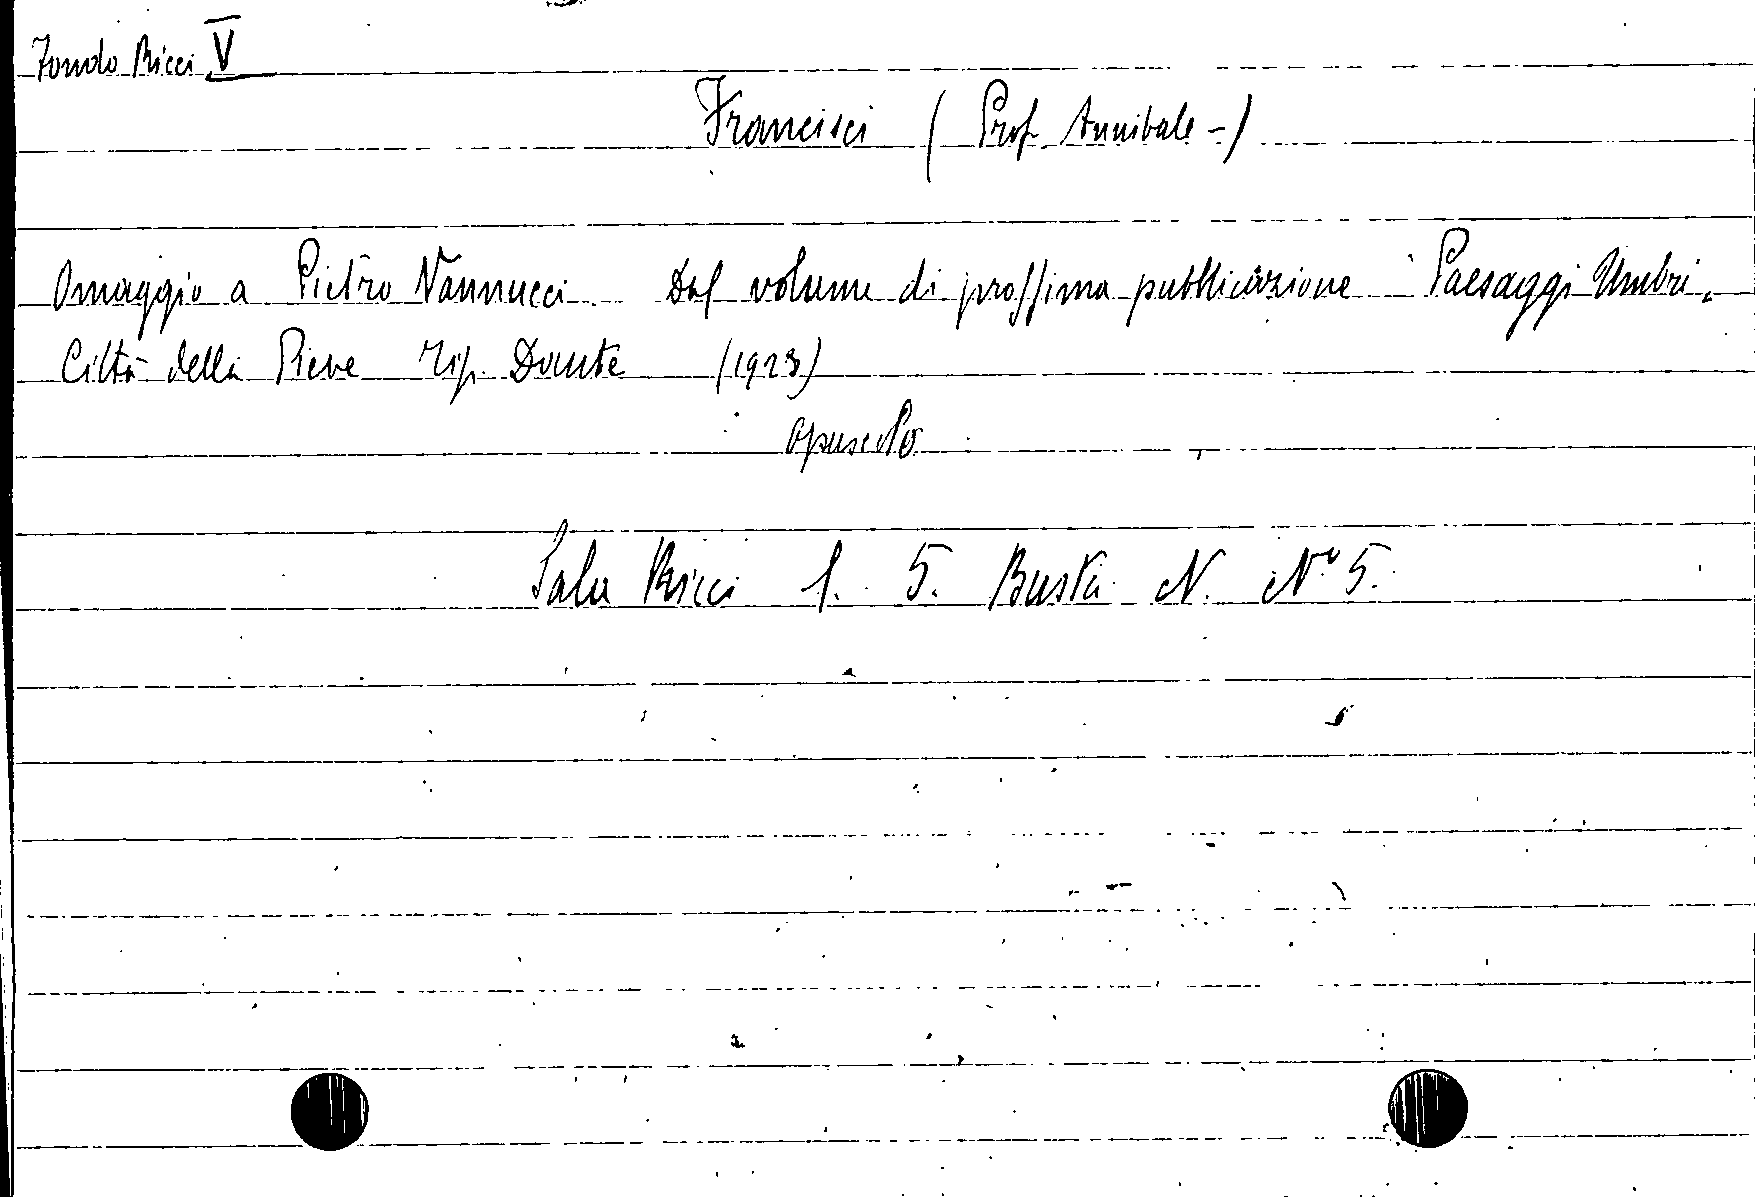 Fondo Ricci V
Francisci (Prof. Annibale -)
Omaggio a Pietro Vannucci. Dal volume di prossima pubblicazione "Paesaggi Umbri"
Città della Pieve Tip. Dante (1923)
opuscolo
Sala Ricci l. 5. Busta N. N° 5.